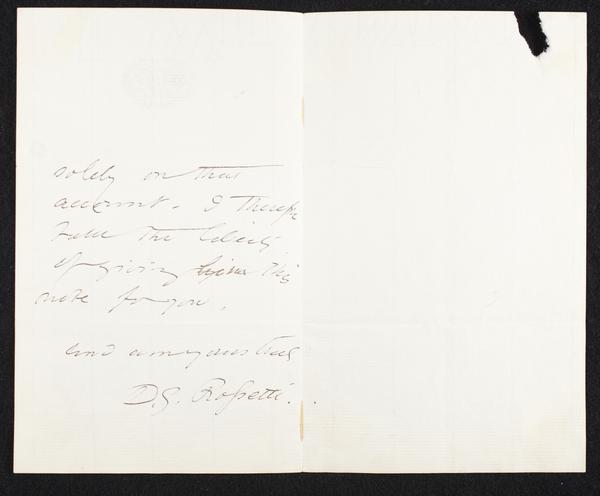 solely on that
account. I therefore
take the liberty
of giving him this
note for you.
and am yours truly
D.G. Rossetti.